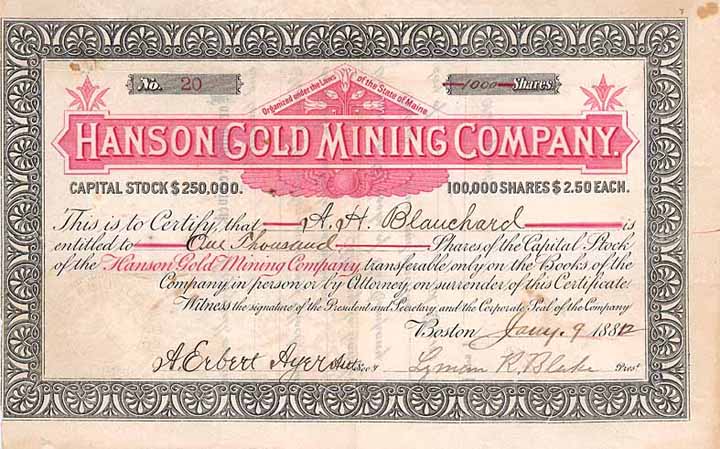 No. 20
1000 Shares
Organized under the Laws of the State of Maine.
HANSON GOLD MINING COMPANY.
CAPITAL STOCK $250,000. 100,000 SHARES $2.50 EACH.
This is to Certify, that A. H. Blanchard is
entitled to One Thousand Shares of the Capital Stock
of the Hanson Gold Mining Company, transferable only on the Books of the
Company, in person or by Attorney, on surrender of this Certificate
Witness the signature of the President and Secretary and the Corporate Seal of the Company
Boston Jany. 9 1882
A. Erbert Ayers Secy. Lyman R. Blake Prest